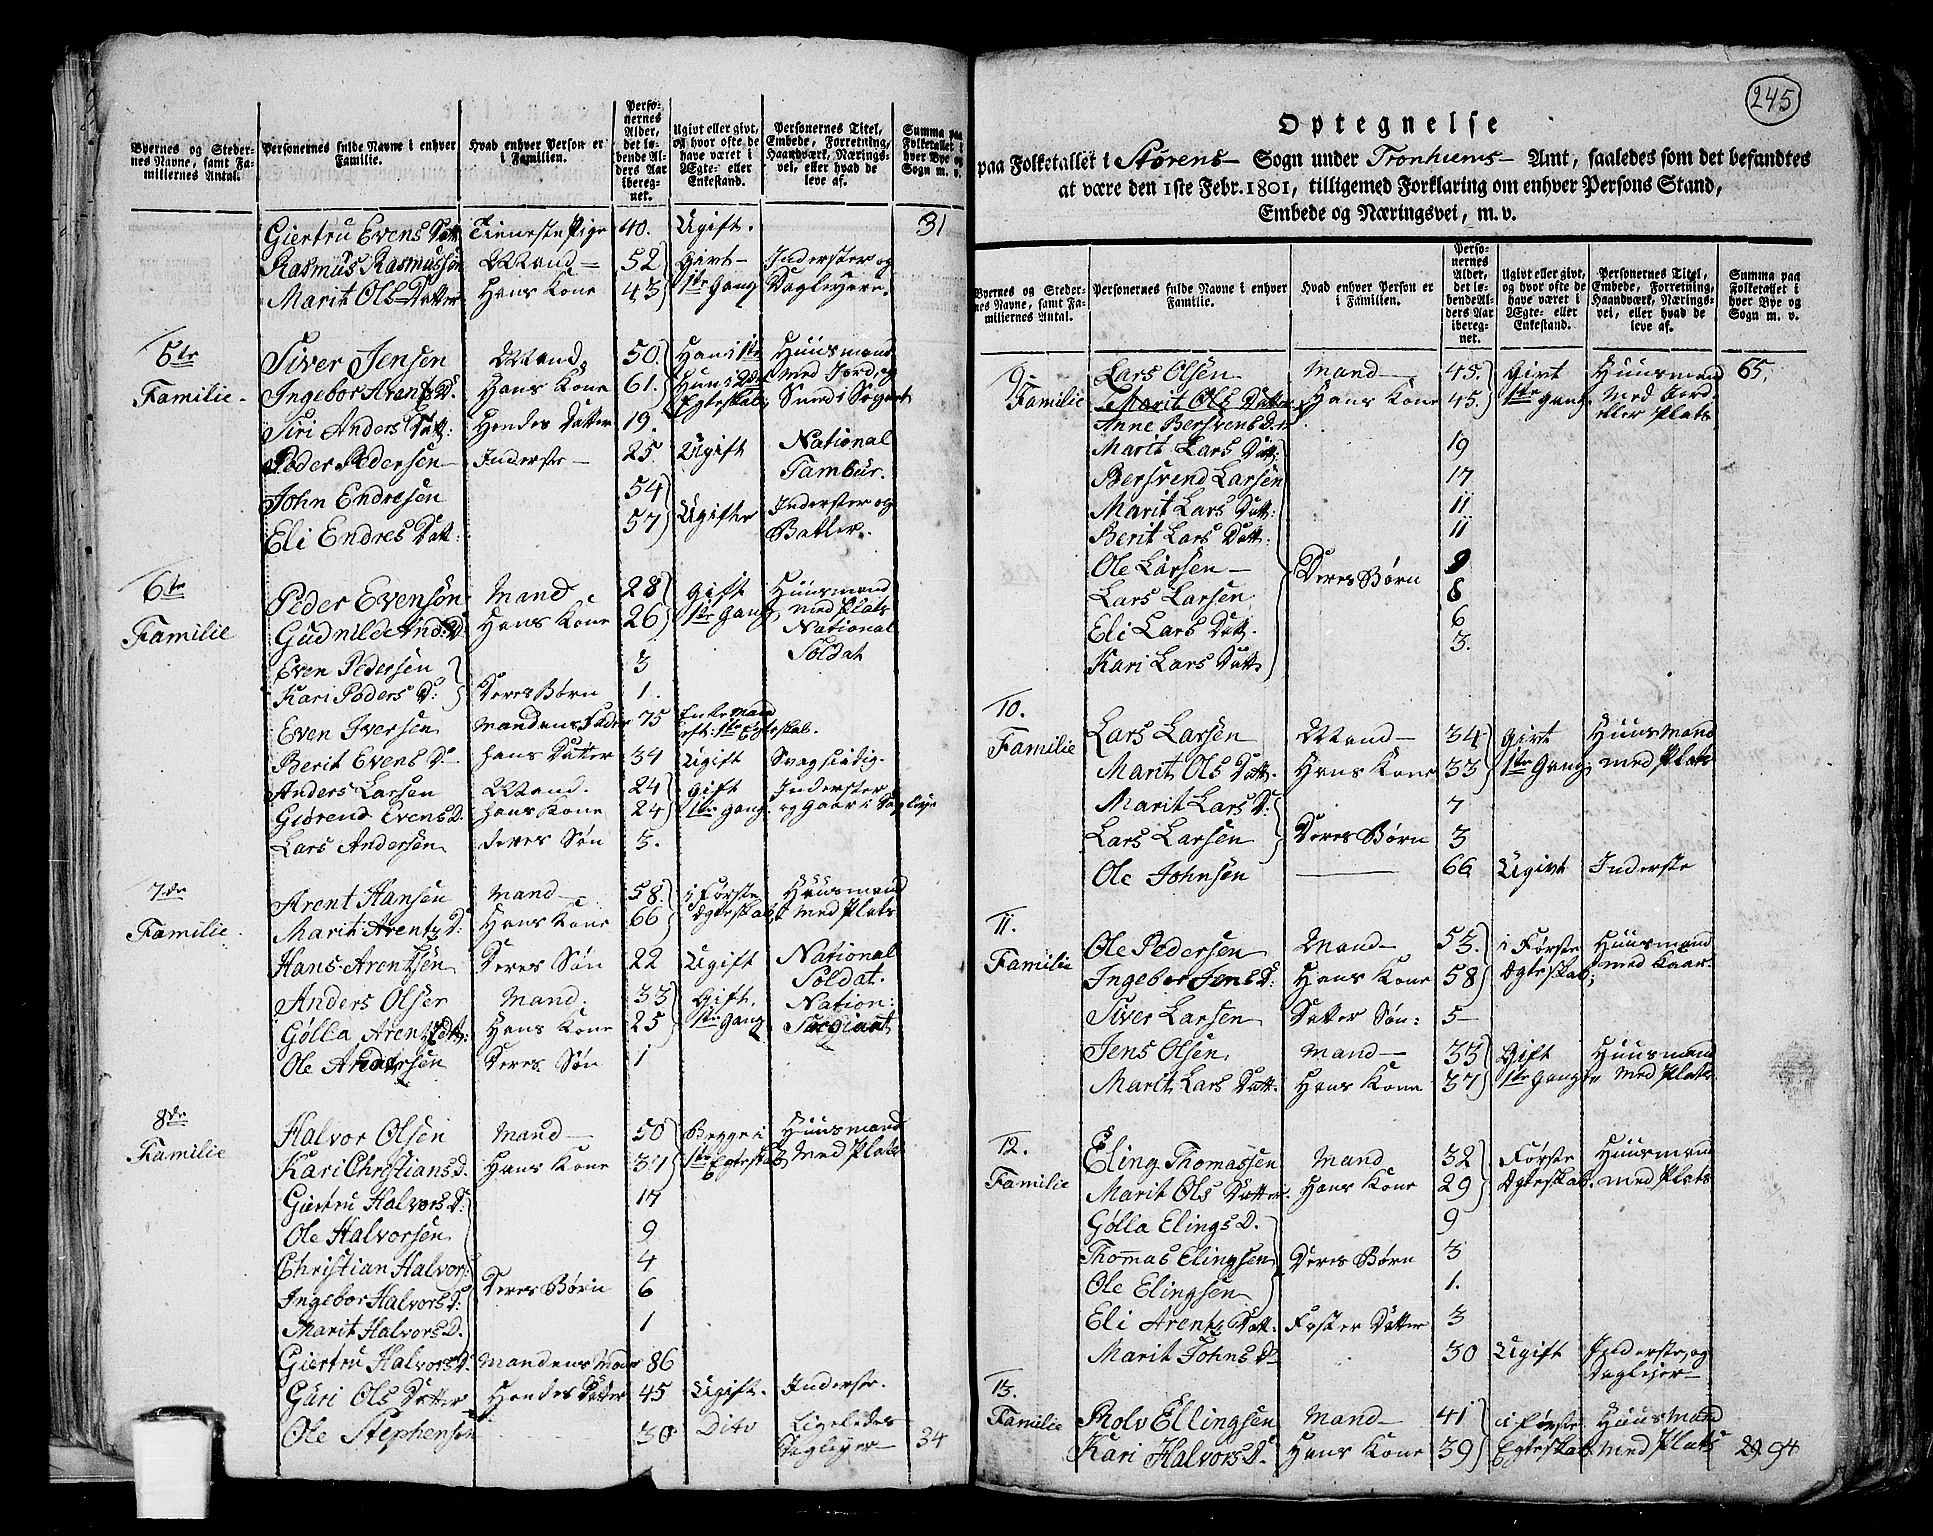 Byernes og Steder-nes Navne, samt Fa-miliernes Antal. | Personernes fulde Navne i enhver Familie. | Hvad enhver Person er i Familien. | Perso-nernes Alder, det lø-bende Al-ders Aar iberegnet. | Ugivt eller givt, og hvor ofte de have været i Ægte- eller Enkestand. | Personernes Titel, Embede, Forretning, Haandværk, Nærings-vei, eller hvad de leve af. | Summa paa Folketallet i hver Bye og Sogn m. v.
Giertru Evens Datt: Tieneste Pige 40. Ugift. 31
Rasmus Rasmussen Mand 52 Givt Inderster og
Marit Ols Datter Hans Kone 43 1ste Gang Dagleyere.
5te Siver Jensen Mand 50 Han i 1ste Huusmand
Familie. Ingebor Arents D. Hans Kone 61. Hun i 2det med Jord og
Egteskab Smed i Sognet
Siri Anders Datt: Hendes Datter 19.
Peder Pedersen Inderste 25 Ugift National
Tambur.
John Endresen 54 Inderster og
Eli Endres Datt: 57 Ugifte Betler.
6te Peder Evensøn Mand 28 gift Huusmand
Familie Gudnilde And. D: Hans Kone 26 1ste Gang med Plats
National
Soldat
Even Pedersen 3
Kari Peders D: Deres Børn 1.
Even Iversen Mandens Fader 75 Enkemand
eft: 1ste Egteskab.
Berit Evens D Hans Datter 34 Ugift Svagsindig.
Anders Larsen Mand. 24 gift Inderster
Giørend Evens D. Hans Kone 24 1ste gang og gaar i Dagleye
Lars Andersen deres Søn 5.
7de Arent Hansen Mand 58. i Første Huusmand
Familie. Marit Arentz D: Hans Kone 66 Ægteskab med Plats
Hans Arentsen Deres Søn 22 Ugift National
Soldat.
Anders Olsen Mand. 33 Gift. Nation:
Gølla Arentz dtr: Hans Kone 25 1ste Gang Sergiant
Ole Andersen Deres Søn 1
8de Halvor Olsen Mand 50 Begge i Huusmand
Familie Kari Christians D. Hans Kone 37 1ste Egteskab med Plats
Giertru Halvors D: 17
Ole Halvorsen 9
Christian Halvors: 4
Ingebor Halvors D: Deres Børn 6
Marit Halvors D. 1
Giertru Halvors D. Mandens Moer 86
Guri Ols Datter Hendes Datter 45 Ugift. Inderste.
Ole Stephensen 30 Dito Ligeledes
Dagleyer 34
245
Optegnelse
paa Folketallet i Størens Sogn under Tronhiems Amt, saaledes som det befandtes
at være den 1ste Febr. 1801, tilligemed Forklaring om enhver Persons Stand,
Embede og Næringsvei, m. v.
Byernes og Steder-nes Navne, samt Fa-miliernes Antal. | Personernes fulde Navne i enhver Familie. | Hvad enhver Person er i Familien. | Perso-nernes Alder, det lø-bende Al-ders Aar iberegnet. | Ugivt eller givt, og hvor ofte de have været i Ægte- eller Enkestand. | Personernes Titel, Embede, Forretning, Haandværk, Nærings-vei, eller hvad de leve af. | Summa paa Folketallet i hver Bye og Sogn m. v.
9. Lars Olsen Mand 45. Givt Huusmand 65.
Familie Marit Ols Datter Hans Kone 45. 1ste gang med Jord
Anne Bersvens D. eller Plats
Marit Lars Datt: 19
Bersvend Larsen 17
Marit Lars Datt: 11
Berit Lars Datt: 11
Ole Larsen 9
Lars Larsen Deres Børn 8
Eli Lars Datt. 6
Kari Lars Datt 3.
10. Lars Larsen Mand 34 Givt Huusmand
Familie Marit Ols Datt. Hans Kone 33 1ste Gang med Plats
Marit Lars D: 7
Lars Larsen Deres Børn 3
Ole Johnsen 66 Ugivt Inderste
11. Ole Pedersen Mand 55. i Første Huusmand
Familie Ingebor Jens D: Hans Kone 58 Ægteskab; med Kaar
Siver Larsen Datter Søn: 5
Jens Olsen Mand 35 Gift Huusmand
Marit Lars Datt: Hans Kone 37 1ste Gang med Plats.
12. Eling Thomassen Mand 32 Første Huusmand
Familie Marit Ols Datter Hans Kone 29 Ægteskab. med Plats
Gølla Elings D. 9
Thomas Elingsen Deres Børn 3
Ole Elingsen 1.
Eli Arentz Datt. Foster Datter 3
Marit Johns D 30 Ugift Inderste, og
Dagleier
13. Rolv Ellingsen Mand 41 i Første Huusmand
Familie Kari Halvors D. Hans Kone 39 Egteskab med Plats 29. 94